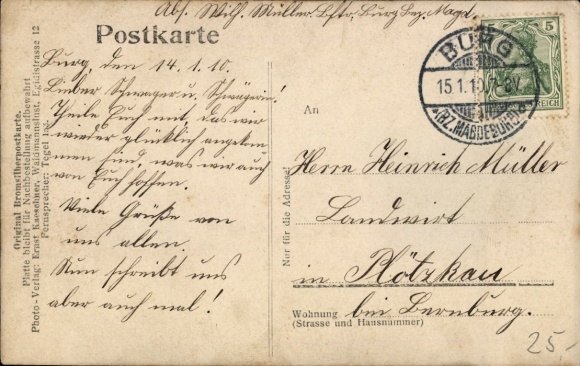 Abs. Wilh. Müller. Lftr. Burg Bez. Magd.
Postkarte
Burg den 14.1.10.
Lieber Schwager u. Schwägerin!
Theile Euch mit, das wir
wieder glücklich angekom
men sind, was wir auch
von Euch hoffen.
Viele Grüße von
uns allen.
Nun schreibt uns
aber auch mal!
Original Bromsilberpostkarte
Platte bleibt für Nachbestellung aufbewahrt
Photo-Verlag: Ernst Kaeschner, Waidmannslust, Egidistrasse 12
Fernsprecher: Tegel
5
REICH
BURG
15.1.10.7-8V.
*(BZ. MAGDEBURG)
An
Herrn Heinrich Müller
Landwirt
in Plötzkau
bei Bernburg.
Wohnung
(Strasse und Hausnummer)
Nur für die Adresse
25.-